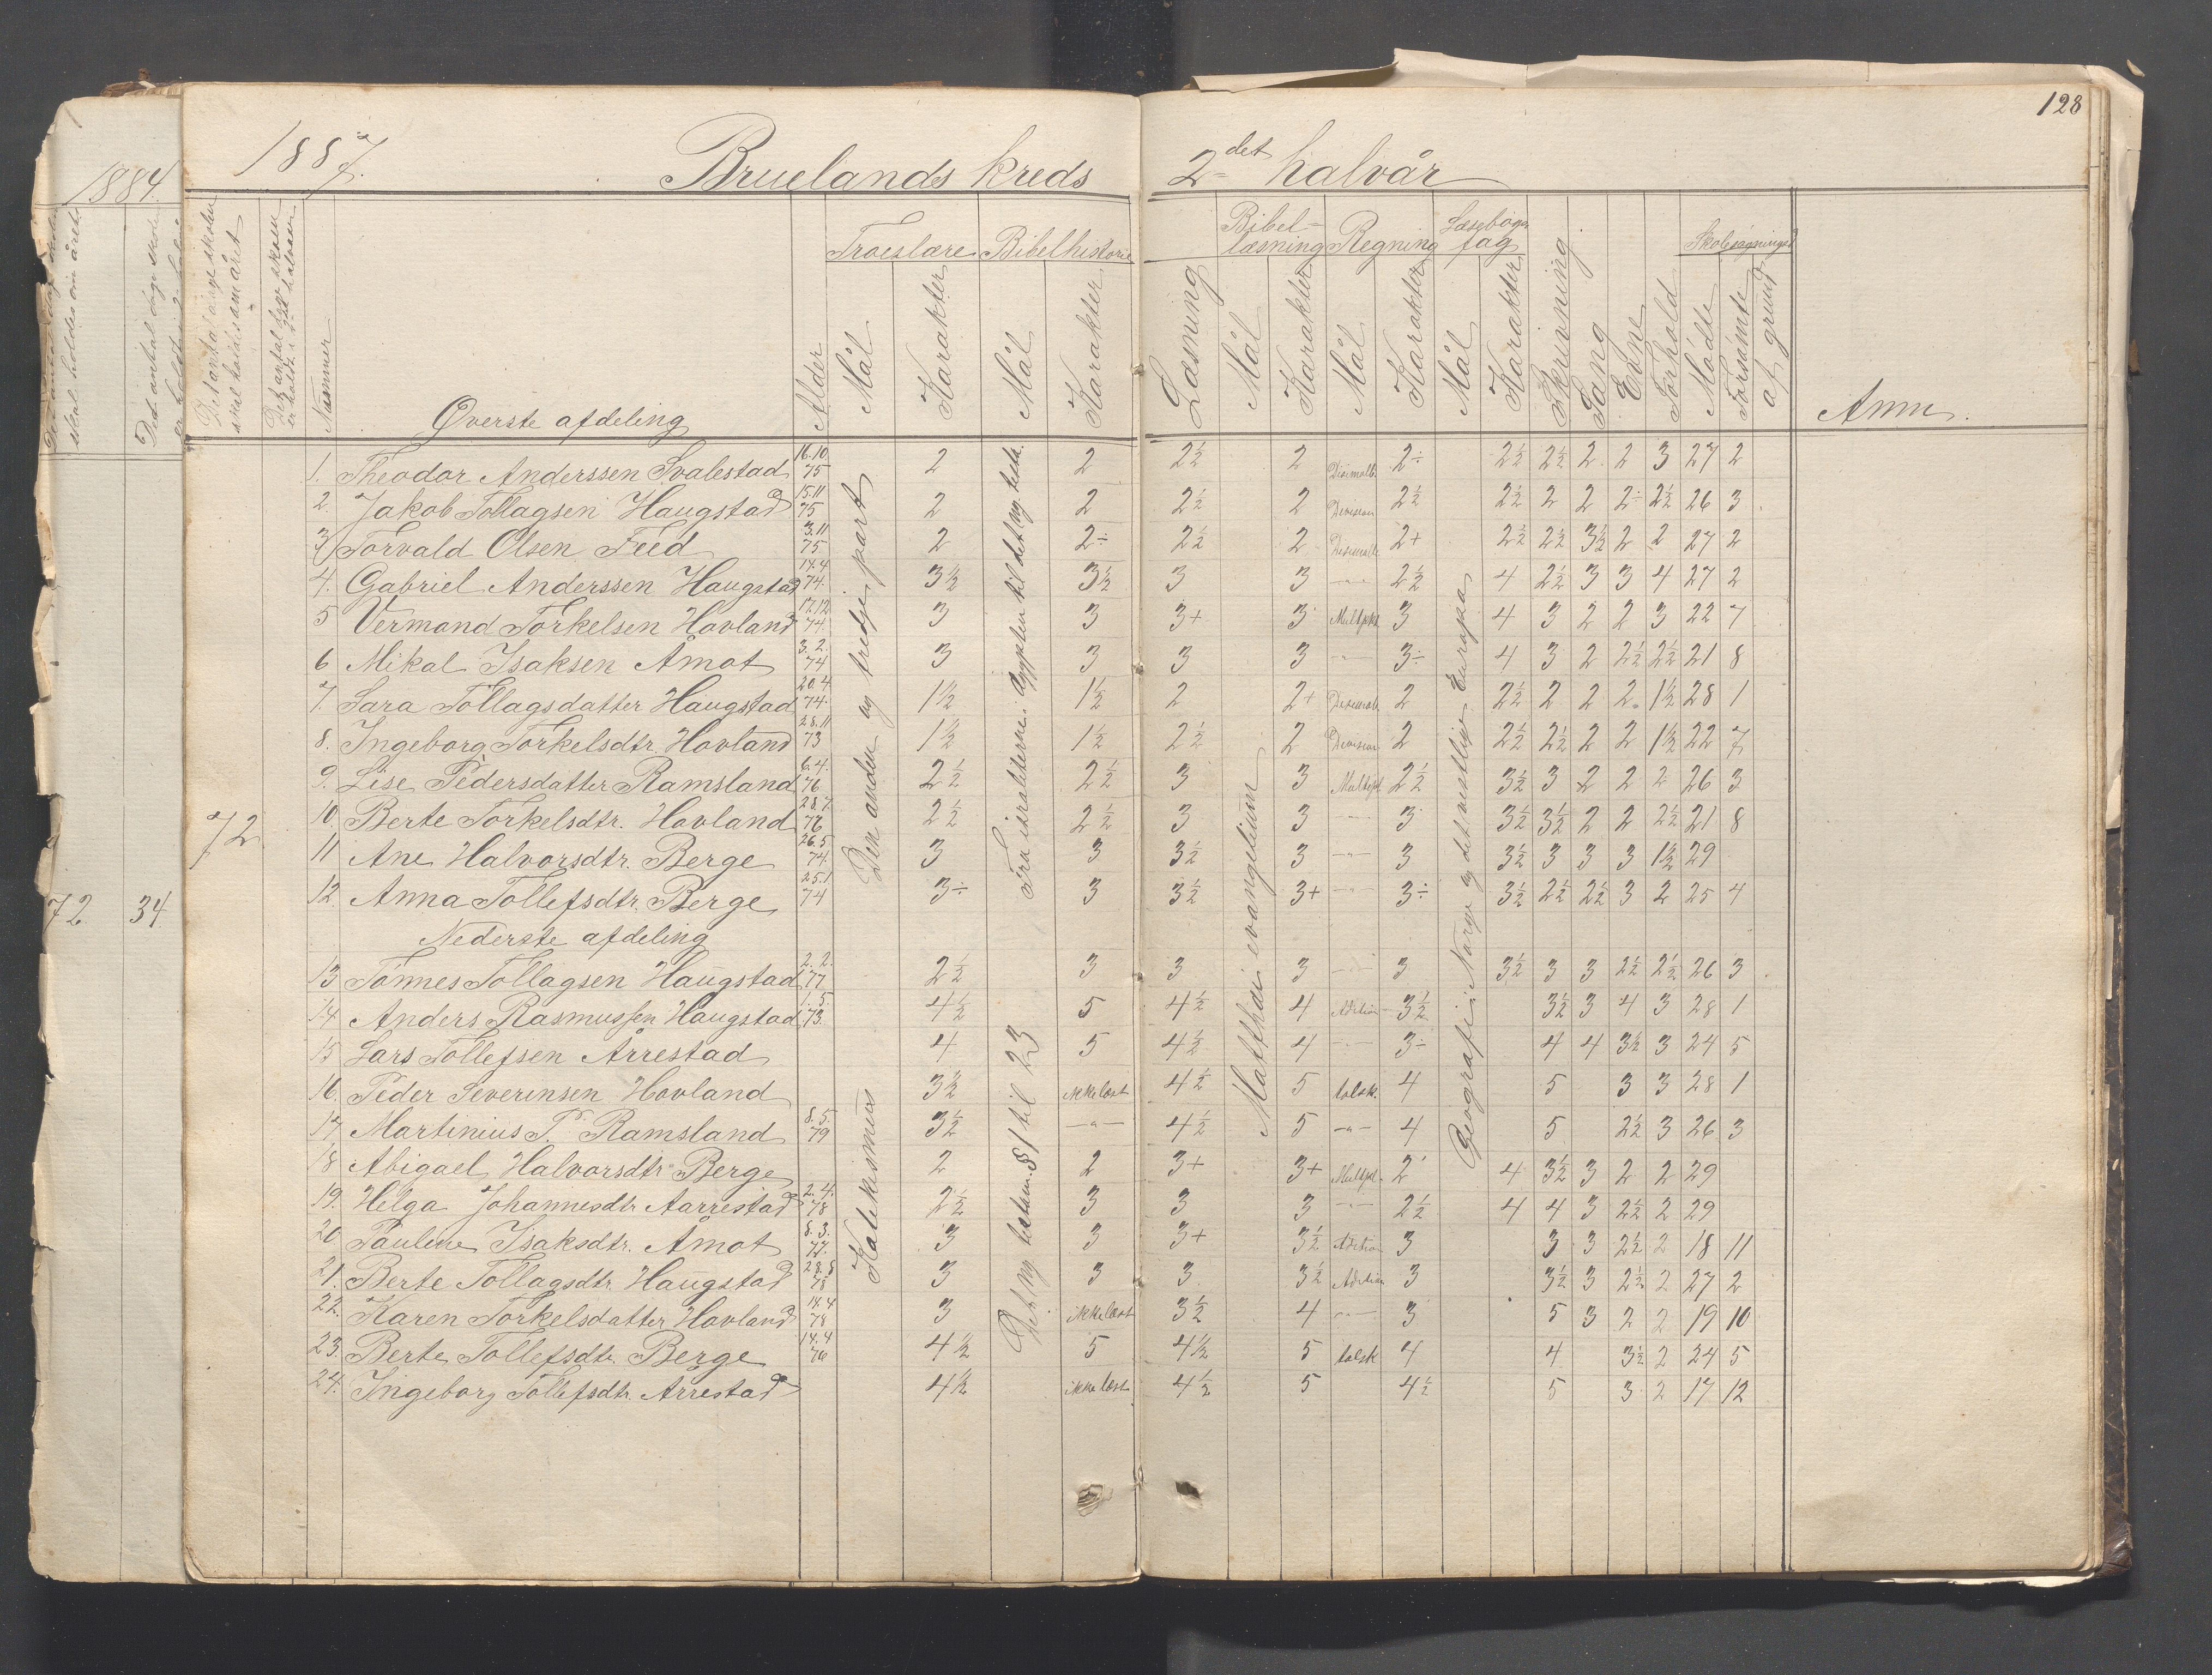 128
1887.
Bruelands kreds
2det halvår
1884.
Troeslære
Bibelhistorie
Bibel=
læsning
Regning
Læsebogs
fag
Skolesøgninger
skal holdes om året
Det antal dage skolen
skal holdes om året
Det antal dage skolen
er holdt i 2det halvaar
Nummer
Øverste afdeling
Alder
Mål
Karakter
Mål
Karakter
Læsning
Mål
Karakter
Mål
Karakter
Mål
Karakter
Skrivning
Sang
Evne
Forhold
Mødte
Forsømte
af grund
Anm.
1. Theodor Anderssen Svalestad 16.10 75 2 2 2½ 2 Desimalb. 2÷ 2½ 2½ 2 2 3 27 2
2. Jakob Tollagsen Haugstad 15.11 75 2 2 2½ 2 Division 2½ 2½ 2 2 2÷ 2½ 26 3
3 Torvald Olsen Feed 3.11 75 2 2÷ 2½ 2 Desimalb 2+ 2½ 2½ 3½ 2 2 27 2
4. Gabriel Anderssen Haugstad 14.4 74. 3½ 3½ 3 3 -"- 2½ 4 2½ 3 3 4 27 2
5 Vermand Torkelsen Hovland 17.12 74 3 3 3+ 3 Multipl. 3 4 3 2 2 3 22 7
6 Mikal Isaksen Åmot 3.2. 74 3 3 3 3 -"- 3÷ 4 3 2 2½ 2½ 21 8
7. Sara Tollagsdatter Haugstad 20.4. 74. 1½ 1½ 2 2+ Desimalb 2 2½ 2 2 2. 1½ 28 1
8. Ingeborg Torkelsdtr. Hovland 28.11 73 1½ 1½ 2½ 2 Division 2 2½ 2½ 2 2 1½ 22 7
9. Lise Pedersdatter Ramsland 6.4. 76 2½ 2½ 3 3 Multipl 2½ 3½ 3 2 2 2 26 3
10 Berte Torkelsdtr. Hovland 28.7. 76 2½ 2½ 3 3 -"- 3 3½ 3½ 2 2 2½ 21 8
72
11 Ane Halvorsdtr. Berge 26.5 74. 3 3 3½ 3 -"- 3 3½ 3 3 3 1½ 29
12. Anna Tollefsdtr. Berge 25.1 74 3÷ 3 3½ 3+ -"- 3÷ 3½ 2½ 2½ 3 2 25 4
72 34
Nederste afdeling
13 Tønnes Tollagsen Haugstad 2.2. 77 2½ 3 3 3 -"- 3 3½ 3 3 2½ 2½ 26 3
14 Anders Rasmussen Haugstad 1.5. 73. 4½ 5 4½ 4 Adition 3½ 3½ 3 4 3 28 1
15 Lars Tollefsen Årrestad 4 5 4½ 4 -"- 3÷ 4 4 3½ 3 24 5
16. Peder Severinsen Hovland 3½ ikke læst 4½ 5 talsk. 4 5 3 3 28 1
17. Martinius P. Ramsland 8.5. 79 3½ -"- 4½ 5 -"- 4 5 2½ 3 26 3
18 Abigael Halvorsdtr Berge 2 2 3+ 3+ Multipl. 2 4 3½ 3 2 2 29
19. Helga Johannesdtr Aarrestad 2.4. 78 2½ 3 3 3 -"- 2½ 4 4 3 2½ 2 29
20 Pauline Isaksdtr. Åmot 8.3. 77. 3 3 3+ 3½ Adition 3 3 3 2½ 2 18 11
21. Berte Tollagsdtr. Haugstad 28.8 78 3 3 3 3½ Adition 3 3½ 3 2½ 2 27 2
22. Karen Torkelsdatter Hovland 14.4 78 3 ikke læst 3½ 4 -"- 3 5 3 2 2 19 10
23. Berte Tollefsdtr. Berge 14.4 76 4½ 5 4½ 5 talsk 4 4 3½ 2 24 5
24. Ingeborg Tollefsdtr. Arrestad 4½ ikke læst 4½ 5 4½ 5 3 2 17 12
Den anden og tredje part
Katekismus
Fra israeliterne i Ægypten til det ny testa.
Det ny testam. § 1 til 23
Matthæi evangelium
Geografi: Norge og det vestlige Europa